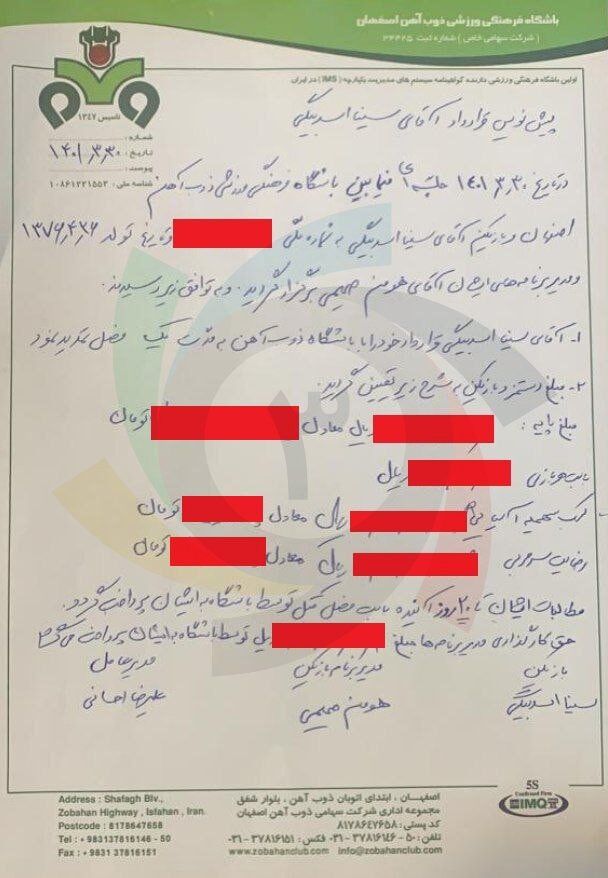 باشگاه فرهنگی ورزشی ذوب آهن اصفهان
( شرکت سهامی خاص ) شماره ثبت ۳۴۴۲۵
اولین باشگاه فرهنگی ورزشی دارنده گواهینامه سیستم های مدیریت یکپارچه (IMS) در ایران
تاسیس ۱۳۴۷
شماره :
تاریخ : ۱۴۰۱,۳,۳۰
پیوست :
شناسه ملی : ۱۰۸۶۱۲۲۱۵۵۲
پیش نویس قرارداد آقای سینا اسدبیگی
در تاریخ ۱۴۰۱,۳,۳۰ جلسه ای فیما بین باشگاه فرهنگی ورزشی ذوب آهن
اصفهان و بازیکن آقای سینا اسدبیگی به شماره ملی و تاریخ تولد ۱۳۷۶,۴,۲۶
و مدیر برنامه های ایشان آقای هومن صمیمی برگزار گردید. و به توافق زیر رسیدند:
۱- آقای سینا اسدبیگی قرارداد خود را با باشگاه ذوب آهن به مدت یک فصل تمدید نمود
۲- مبلغ دستمزد بازیکن به شرح زیر تعیین گردید.
مبلغ پایه : ریال معادل تومان
بابت هر بازی ریال
کسب سهمیه آسیایی ریال معادل تومان
رضایت سرمربی ریال معادل تومان
مطالبات ایشان تا ۲۰ روز آینده بابت فصل قبل توسط باشگاه به ایشان پرداخت گردد.
حق کارگذاری مدیر برنامه ها مبلغ ریال توسط باشگاه به ایشان پرداخت می گردد
بازیکن مدیر برنامه بازیکن مدیرعامل
سینا اسدبیگی هومن صمیمی علیرضا احسانی
۳
5S
Confirmed Firm
IMQ
اصفهـــان ، ابتدای اتوبان ذوب آهن ، بلوار شفق
مجموعه اداری شرکت سهامی ذوب آهن اصفهان
کد پستی: ۸۱۷۸۶۴۷۶۵۸
تلفن: ۵۰ - ۳۷۸۱۶۱۴۶ -۰۳۱ فکس: ۳۷۸۱۶۱۵۱ -۰۳۱
www.zobahanclub.com info@zobahanclub.com
Address : Shafagh Blv.,
Zobahan Highway , Isfahan , Iran.
Postcode : 8178647658
Tel : + 983137816146 - 50
Fax : +9831 37816151